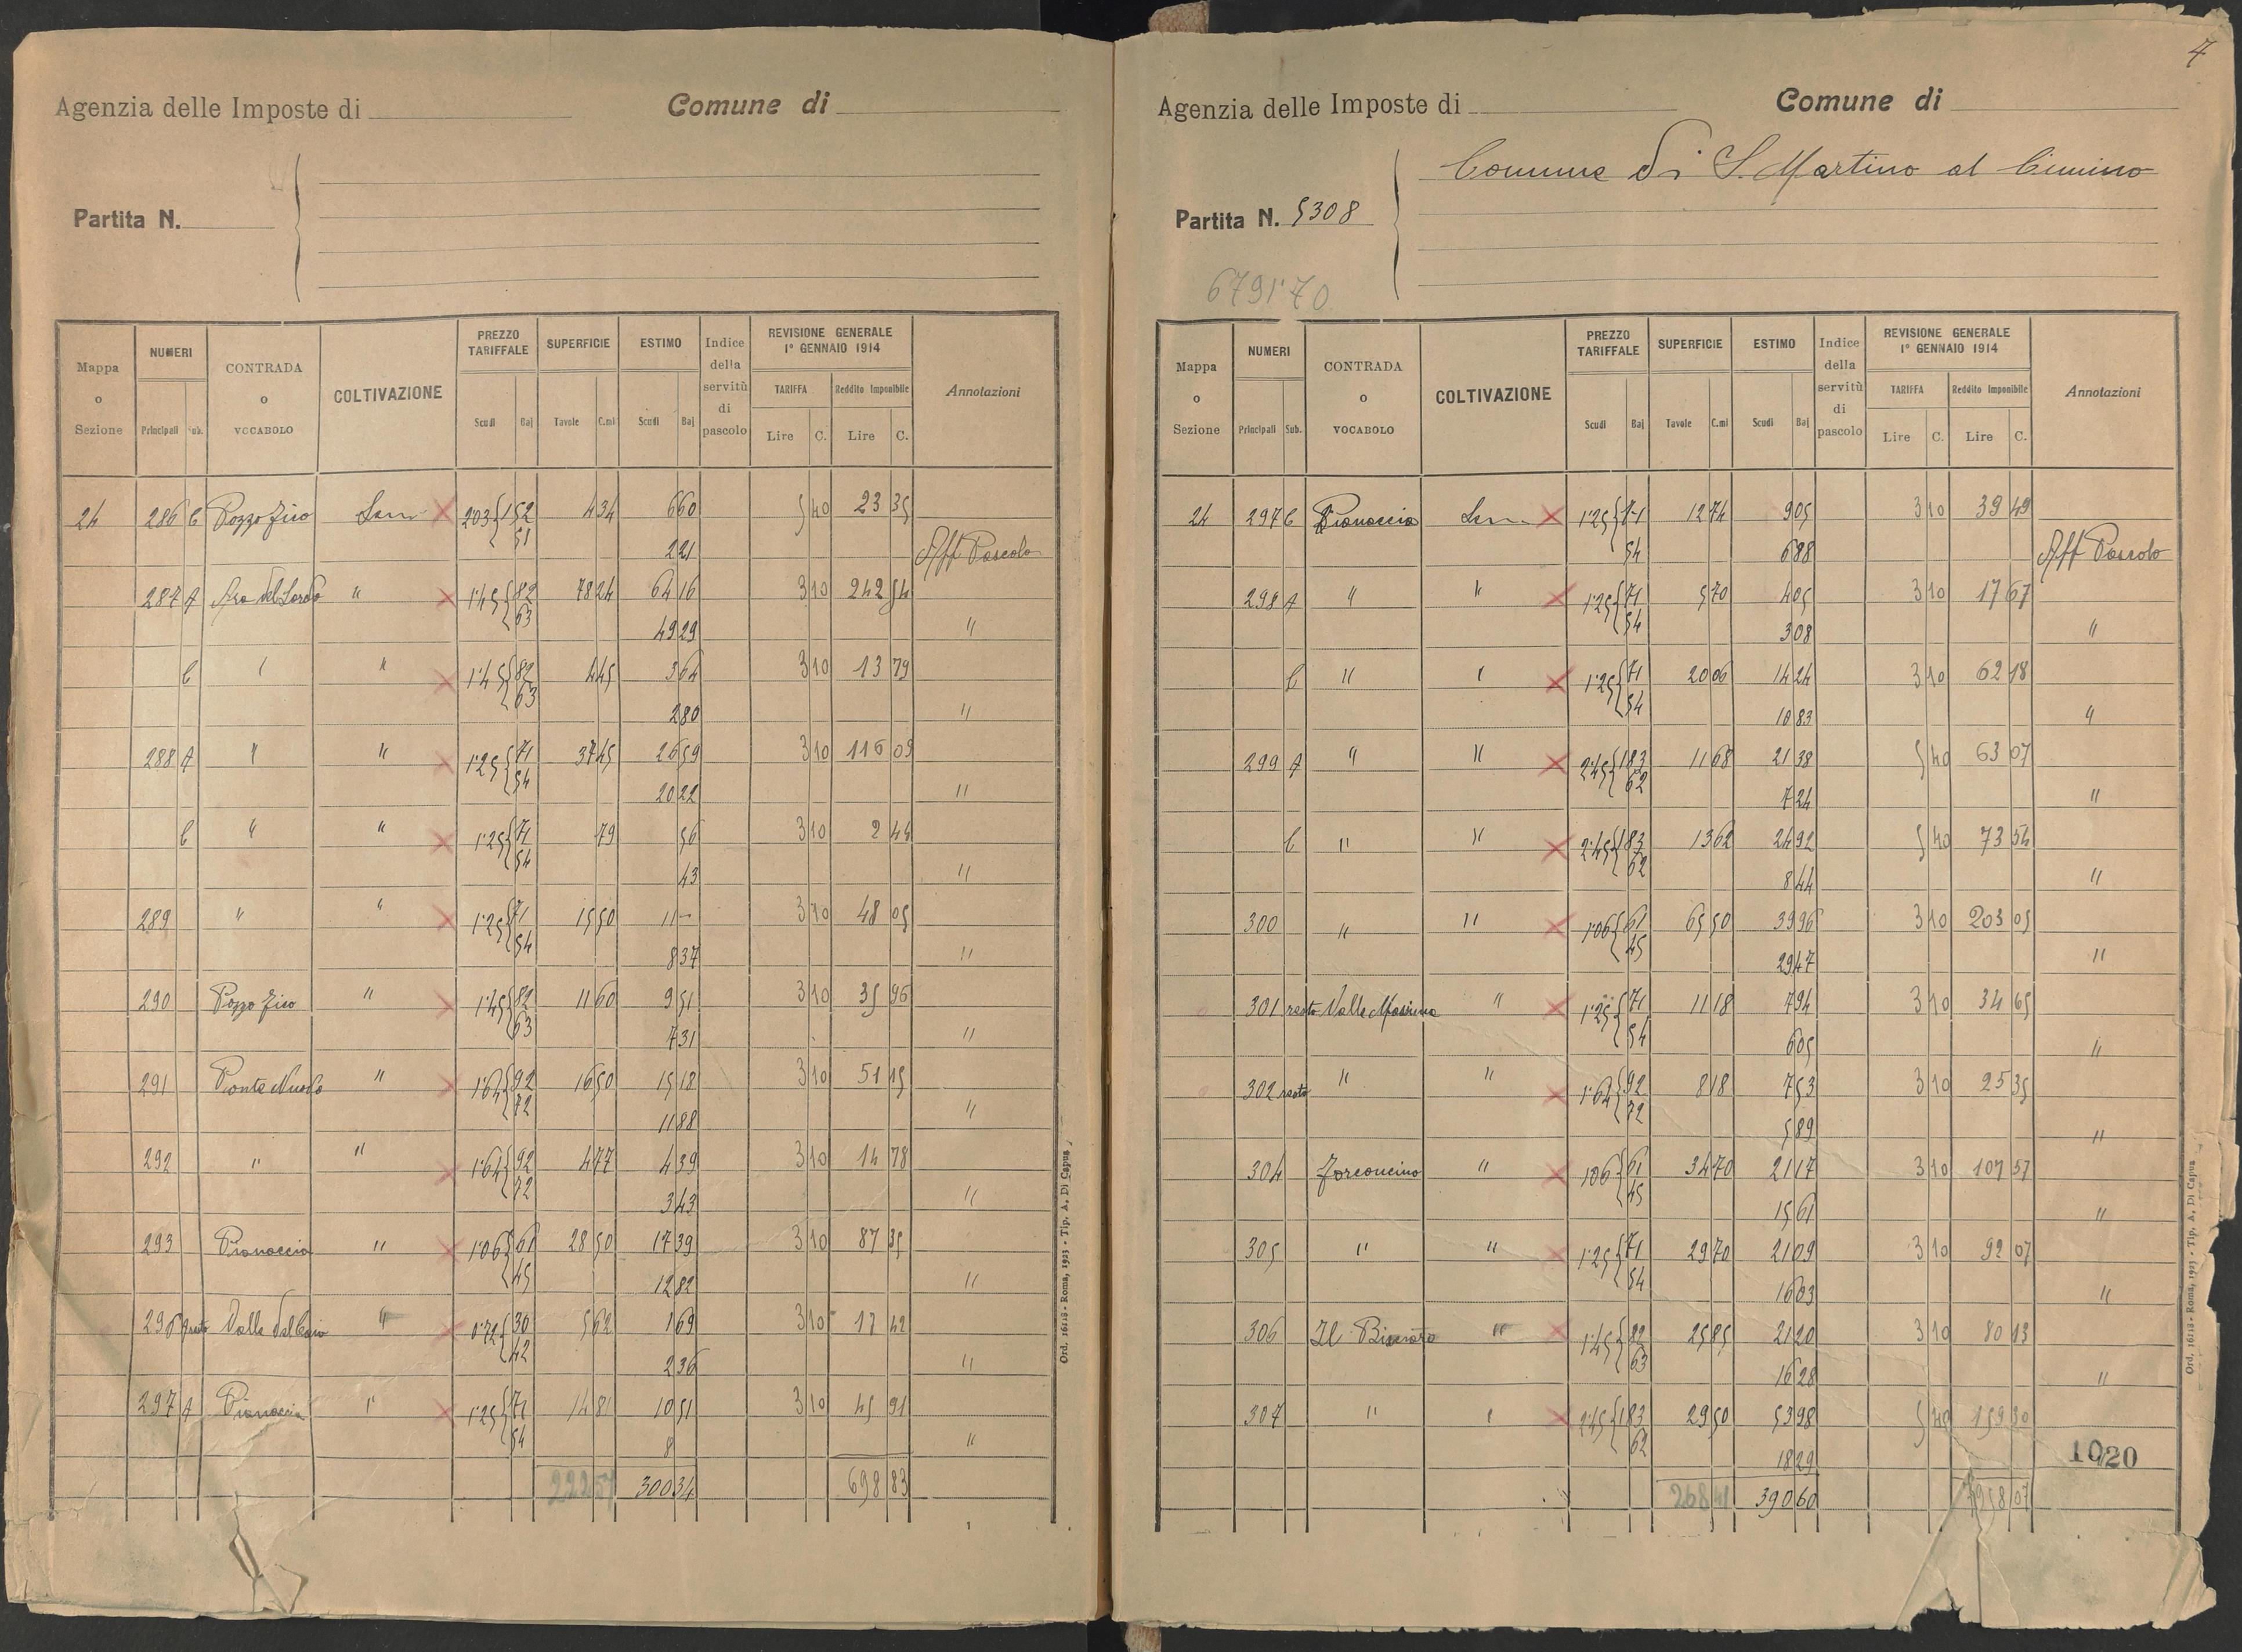 Agenzia delle Imposte di Comune di
Partita N.
Mappa o Sezione NUMERI Principali Sub. CONTRADA o VOCABOLO COLTIVAZIONE PREZZO TARIFFALE Scudi Baj SUPERFICIE Tavole C.mi ESTIMO Scudi Baj Indice della servitù di pascolo REVISIONE GENERALE 1° GENNAIO 1914 TARIFFA Lire C. Reddito Imponibile Lire C. Annotazioni
24 286 C Pozzo Fico Sem 203 152 4 34 6 60 5 40 23 35
51 2 21 Aff Pascolo
287 A " 1·45 82 78 24 64 16 3 10 242 54
63 49 29 "
C " " 1·45 82 4 45 3 64 3 10 13 79
63 2 80 "
288 A " " 1·25 71 37 45 26 59 3 10 116 09
54 20 22 "
C " " 1·25 71 79 56 3 10 2 44
54 43 "
289 " " 1·25 71 15 50 11 - 3 10 48 05
54 8 37 "
290 Pozzo Fico " 1·45 82 11 60 9 51 3 10 35 96
63 7 31 "
291 Ponte Nuovo " 1·64 92 16 50 15 18 3 10 51 15
72 11 88 "
292 " " 1·64 92 4 77 4 39 3 10 14 78
72 3 43 "
293 Pianaccia " 1·06 61 28 50 17 39 3 10 87 35
45 12 82 "
resto " 0·72 30 5 62 1 69 3 10 17 42
42 2 36 "
297 A Pianaccia " 1·25 71 14 81 10 51 3 10 45 91
54 8 "
222 57 300 34 698 83
Ord. 16118 - Roma, 1923 - Tip. A. Di Capua
7
Agenzia delle Imposte di Comune di
Comune di S. Martino al Cimino
Partita N. 5308
6791·70
Mappa o Sezione NUMERI Principali Sub. CONTRADA o VOCABOLO COLTIVAZIONE PREZZO TARIFFALE Scudi Baj SUPERFICIE Tavole C.mi ESTIMO Scudi Baj Indice della servitù di pascolo REVISIONE GENERALE 1° GENNAIO 1914 TARIFFA Lire C. Reddito Imponibile Lire C. Annotazioni
24 297 C Pianaccia Sem 1·25 71 12 74 9 05 3 10 39 49
54 6 88 Aff Pascolo
298 A " " 1·25 71 5 70 4 05 3 10 17 67
54 3 08 "
C " " 1·25 71 20 06 14 24 3 10 62 18
54 10 83 "
299 A " " 2·45 183 11 68 21 38 5 40 63 07
62 7 24 "
C " " 2·45 183 13 62 24 92 5 40 73 54
62 8 44 "
300 " " 1·06 61 65 50 39 96 3 10 203 05
45 29 47 "
301 resto Valle Massima " 1·25 71 11 18 7 94 3 10 34 65
54 6 05 "
302 resto " " 1·64 92 8 18 7 53 3 10 25 35
72 5 89 "
304 Forconcino " 1·06 61 34 70 21 17 3 10 107 57
45 15 61 "
305 " " 1·25 71 29 70 21 09 3 10 92 07
54 16 03 "
306 " 1·45 82 25 85 21 20 3 10 80 13
63 16 28 "
307 " " 2·45 183 29 50 53 98 5 40 159 30
62 18 29
1020
268 41 390 60 958 07
Ord. 16118 - Roma, 1923 - Tip. A. Di Capua